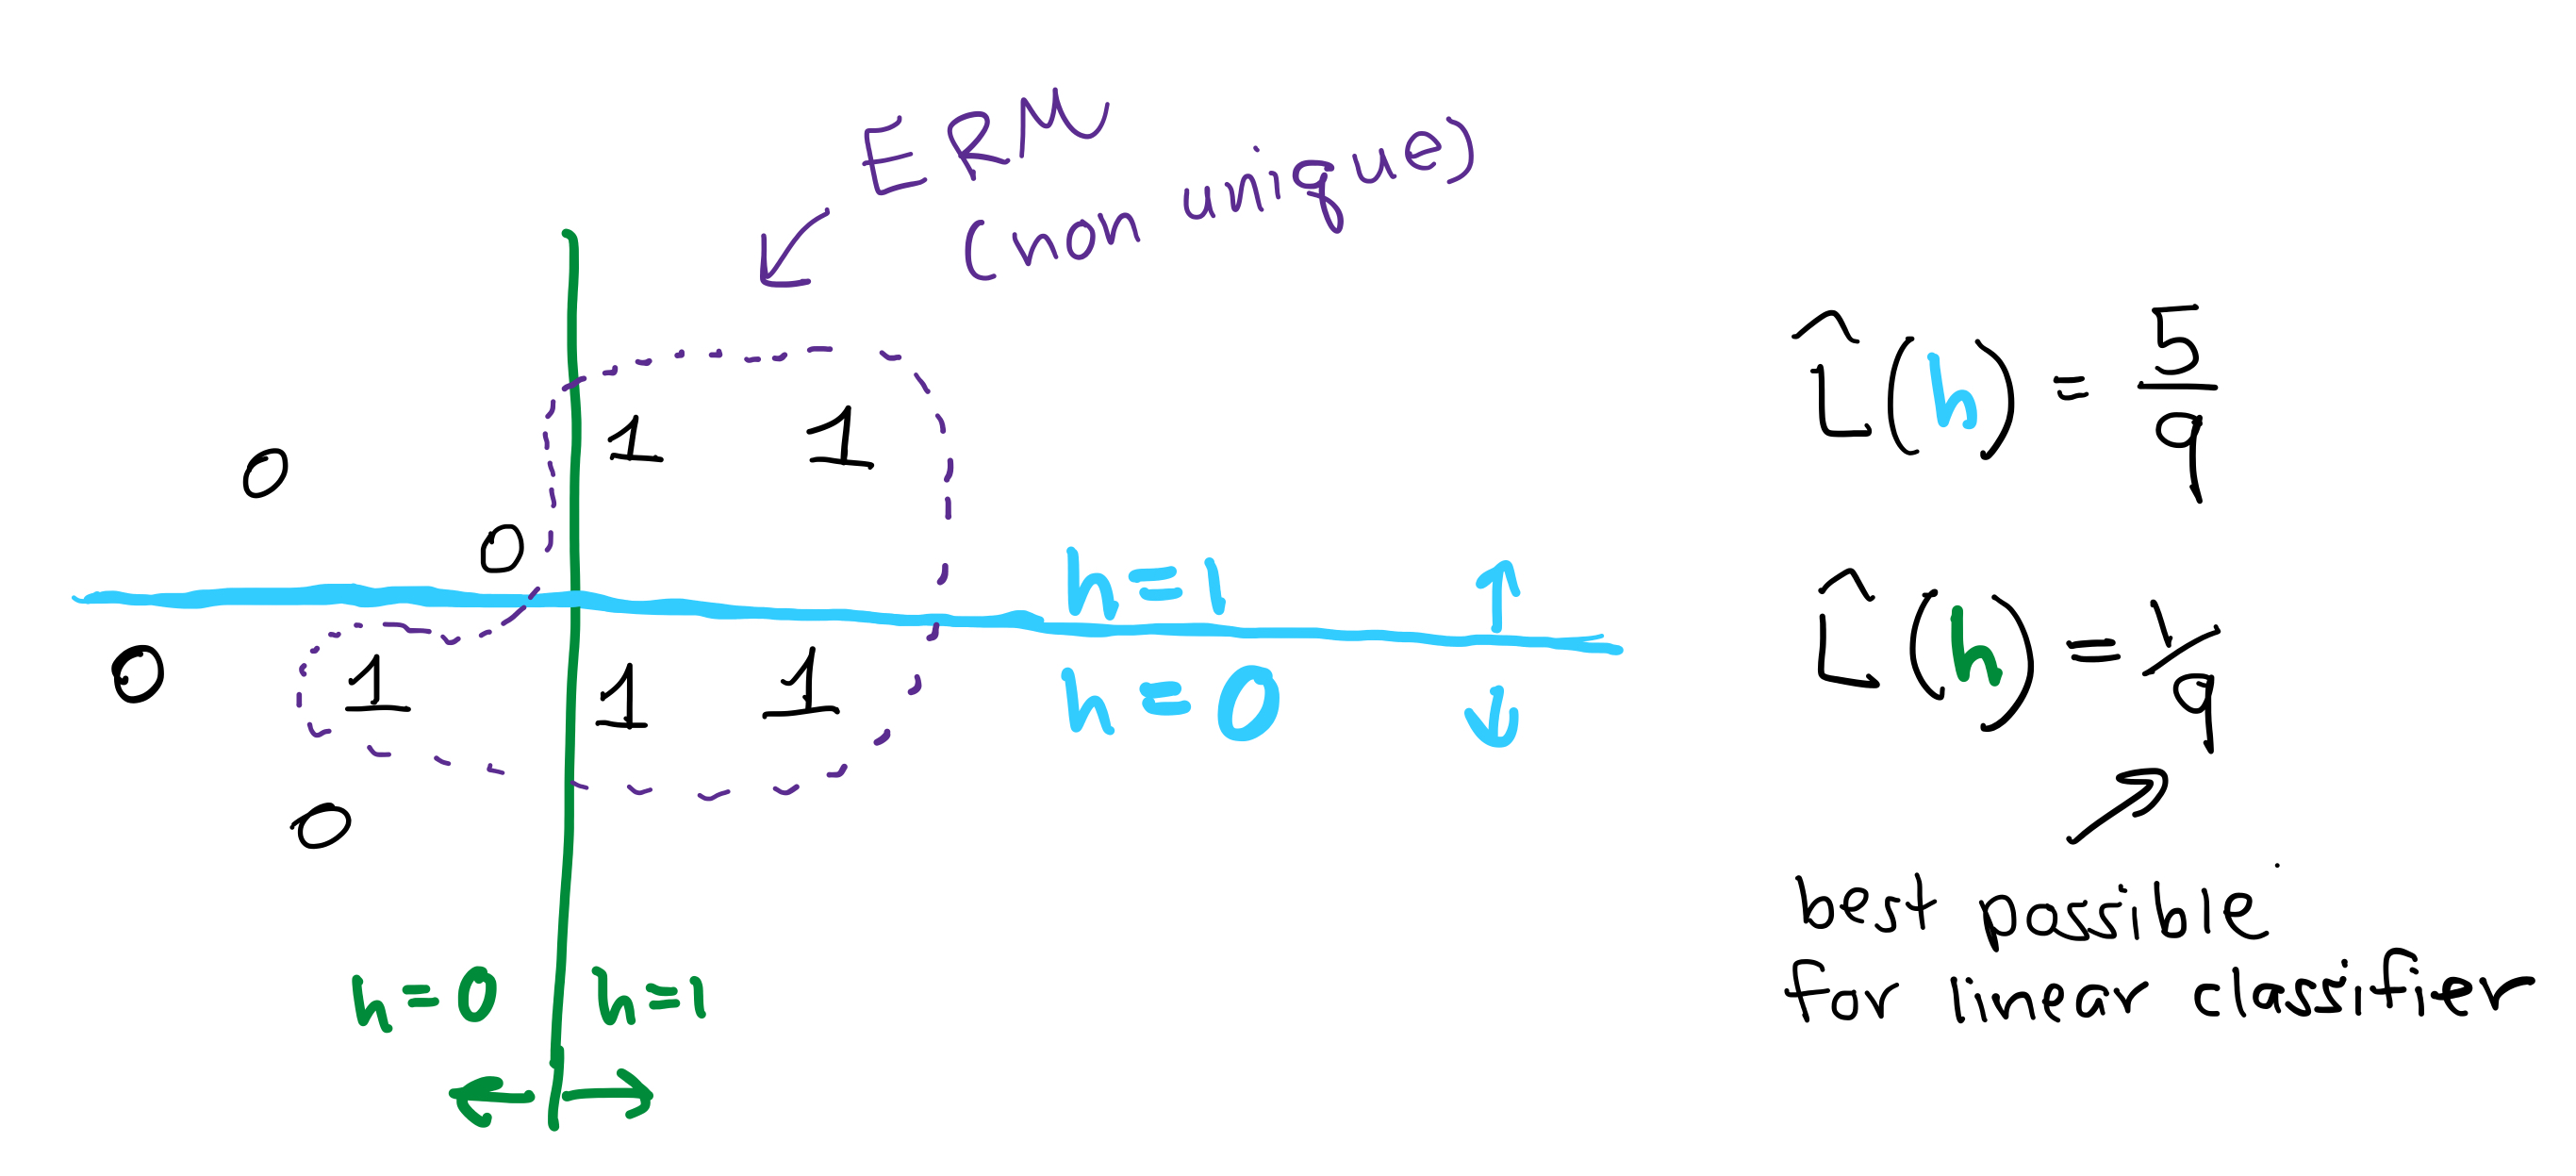 ERM
(non unique)
1 1
0
0
h=1
h=0
0
1 1 1
0
h=0 h=1
L̂(h) = 5/9
L̂(h) = 1/9
best possible
for linear classifier